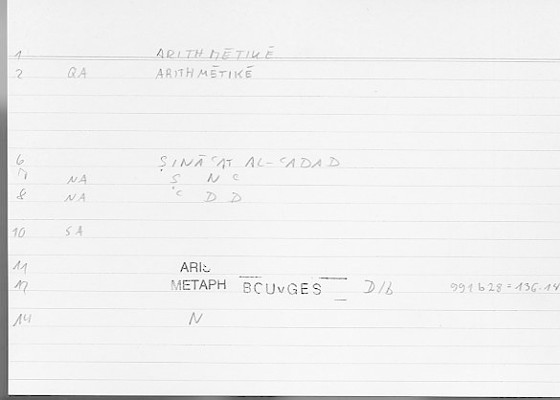 1 ARITHMĒTIKĒ
2 QA ARITHMĒTIKĒ
6 ṢINĀʿAT AL-ʿADAD
7 NA Ṣ N ʿ
8 NA ʿ D D
10 SA
11 ARIS
12 METAPH BOUYGES D/b 991b28=136.14
14 N